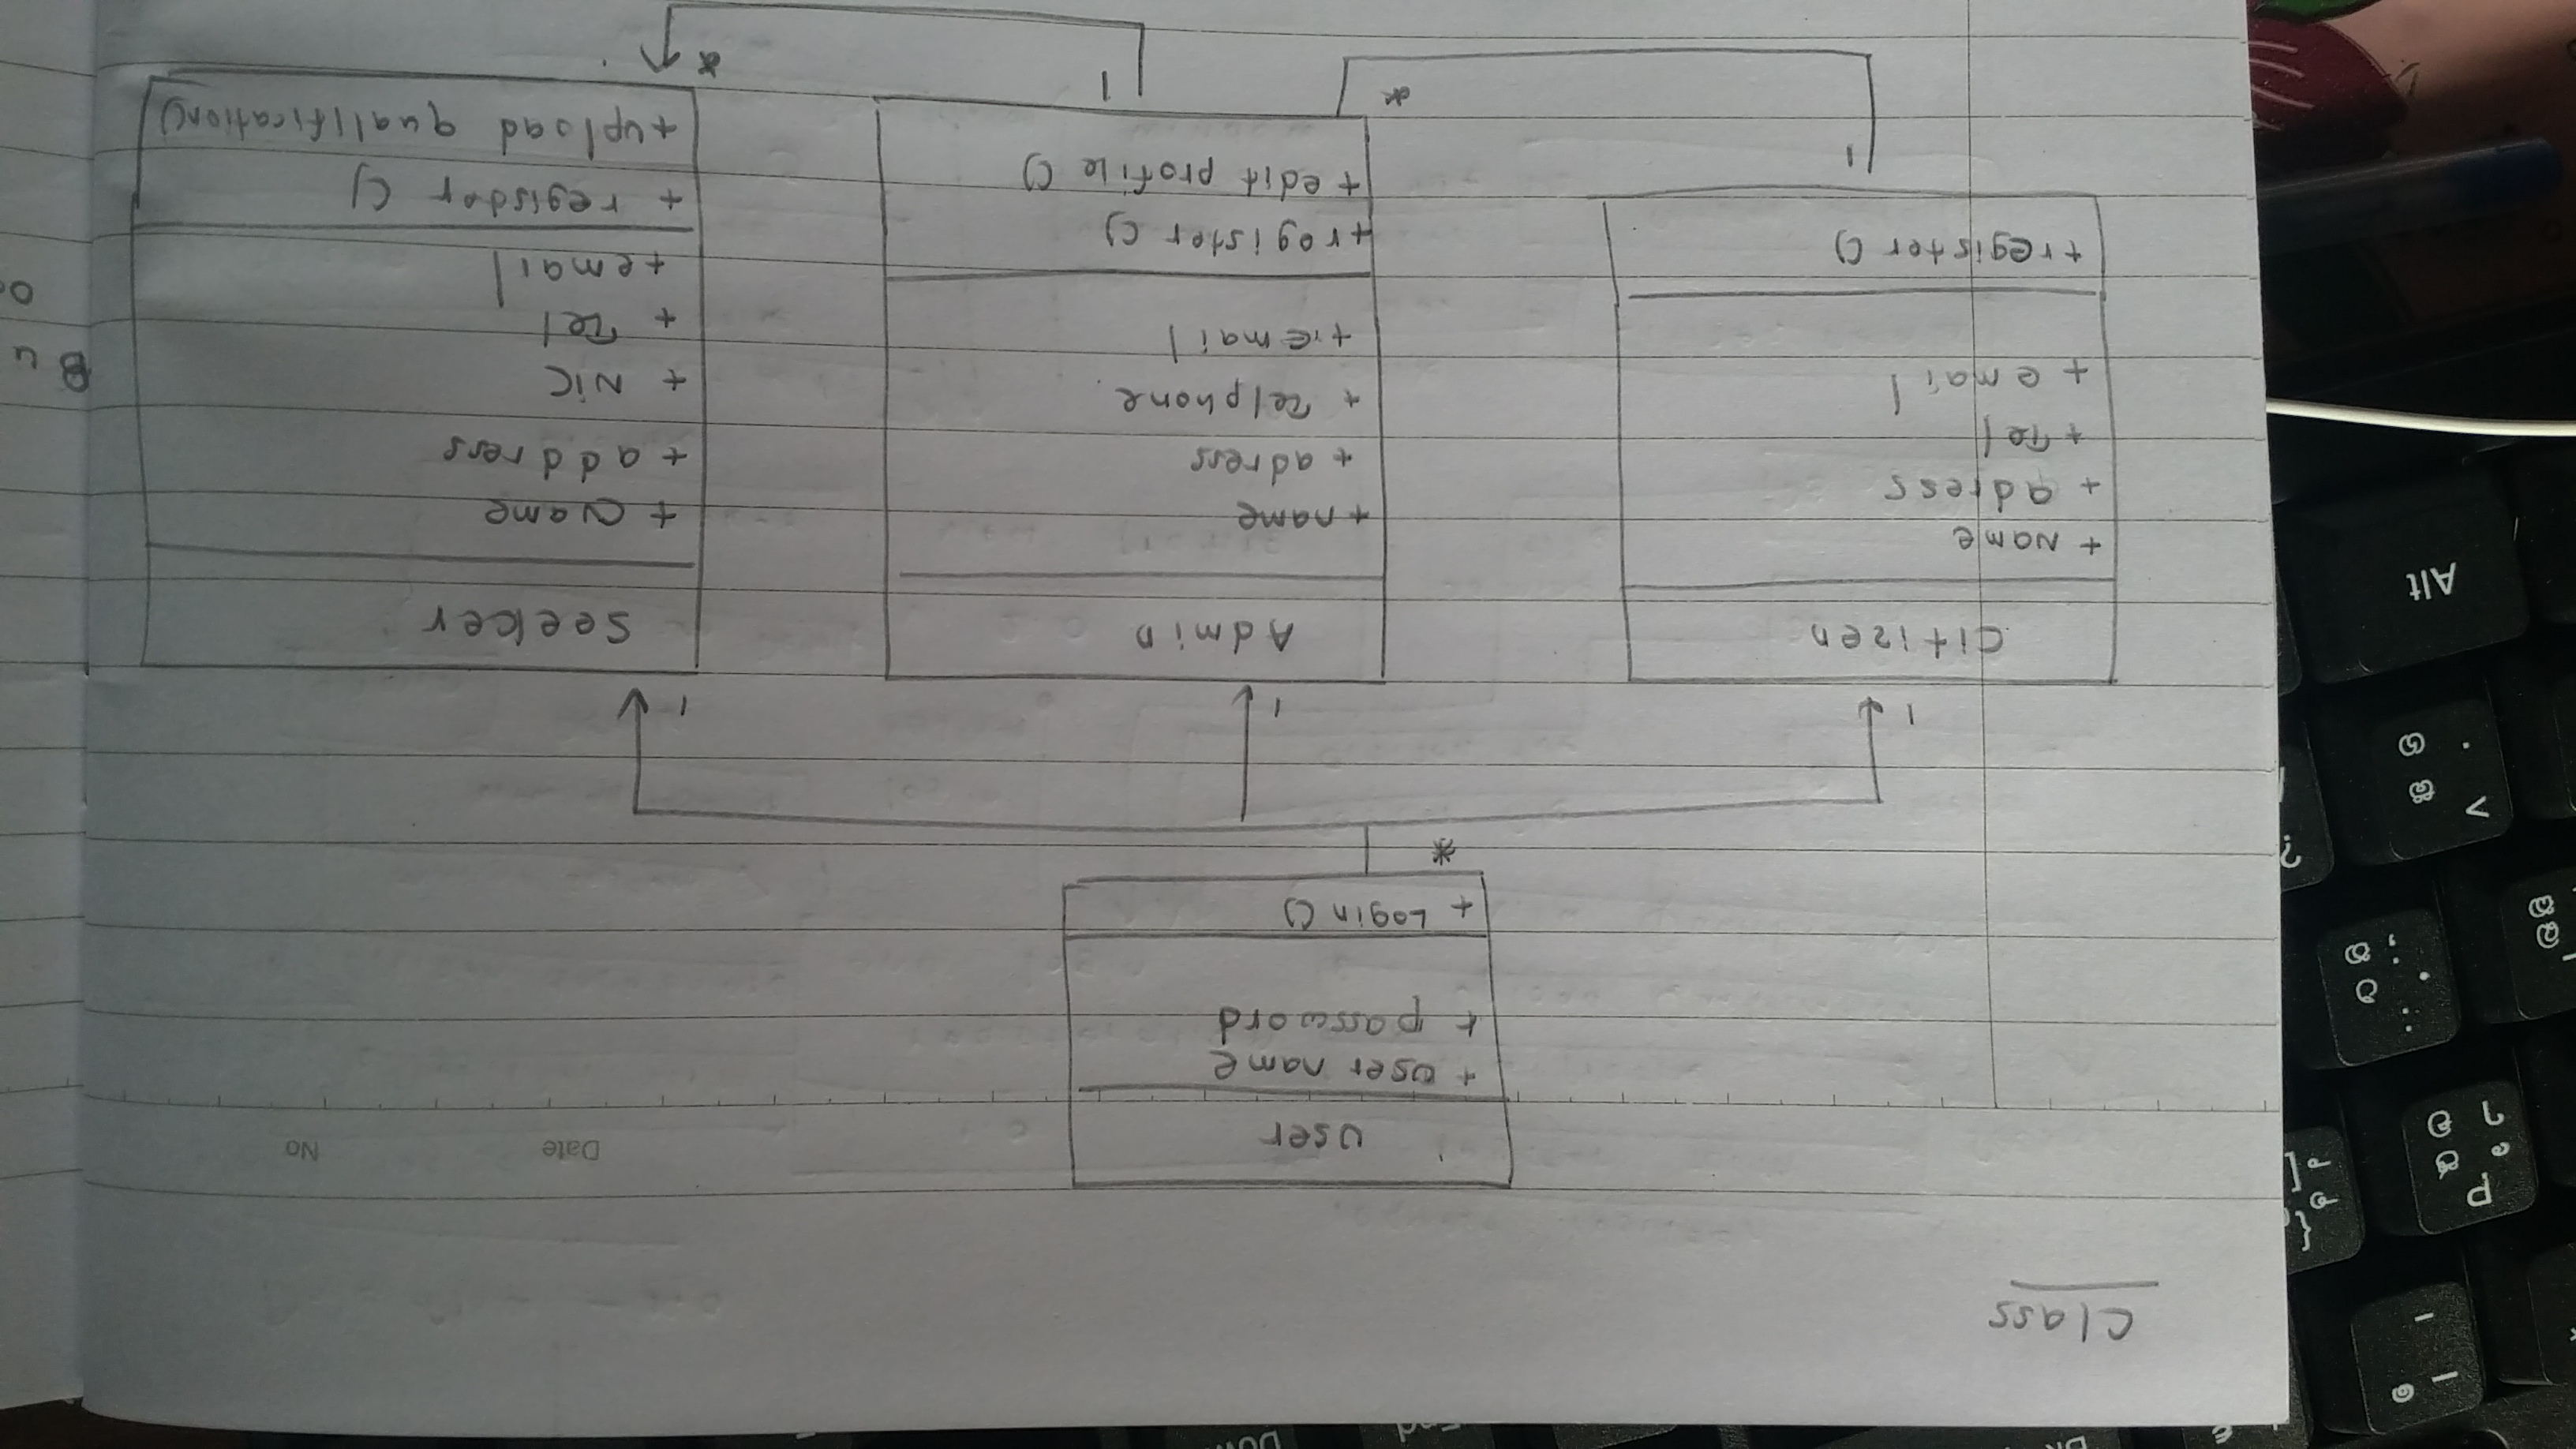 Class
Date No
User
+ User name
+ password
+ Login ()
*
1 1 1
Citizen
+ Name
+ adress
+ Tel
+ email
+ register ()
1
*
Admin
+ name
+ adress
+ Telphone
+ email
+ register ()
+ edit profile ()
1
*
Seeker
+ Name
+ address
+ NIC
+ Tel
+ email
+ register ()
+ upload qualification()
P
Alt
>
?
End